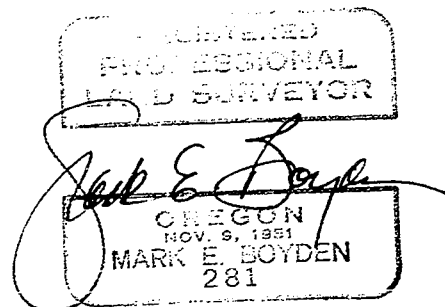 REGISTERED
PROFESSIONAL
LAND SURVEYOR
Mark E Boyden
OREGON
NOV. 9, 1951
MARK E. BOYDEN
281